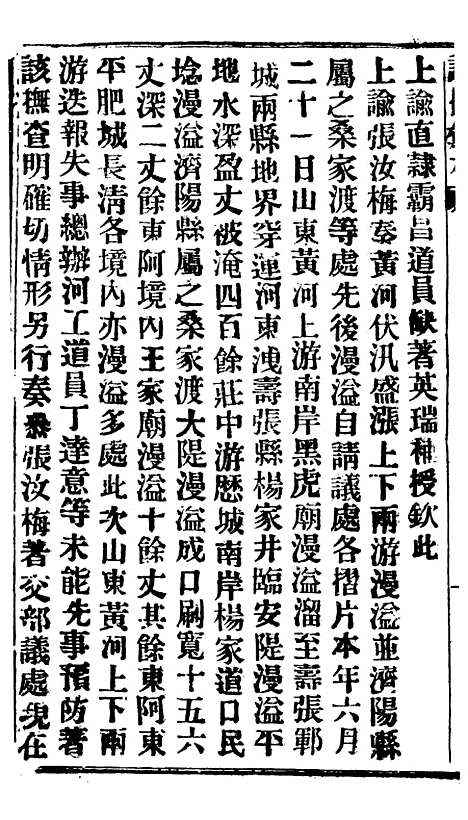 上諭直隷霸昌道員缺著英瑞補授欽此
上諭張汝梅奏黃河伏汛盛漲上下兩游漫溢並濟陽縣
屬之桑家渡等處先後漫溢自請議處各摺片本年六月
二十一日山東黃河上游南岸黑虎廟漫溢溜至壽張鄆
城兩縣地界穿運河東洩壽張縣楊家井臨安隄漫溢平
地水深盈丈被淹四百餘莊中游歷城南岸楊家道口民
埝漫溢濟陽縣屬之桑家渡大隄漫溢成口刷寬十五六
丈深二丈餘東阿境內王家廟漫溢十餘丈其餘東阿東
平肥城長清各境內亦漫溢多處此次山東黃河上下兩
游迭報失事總辦河工道員丁達意等未能先事預防著
該撫查明確切情形另行奏叅張汝梅著交部議處現在